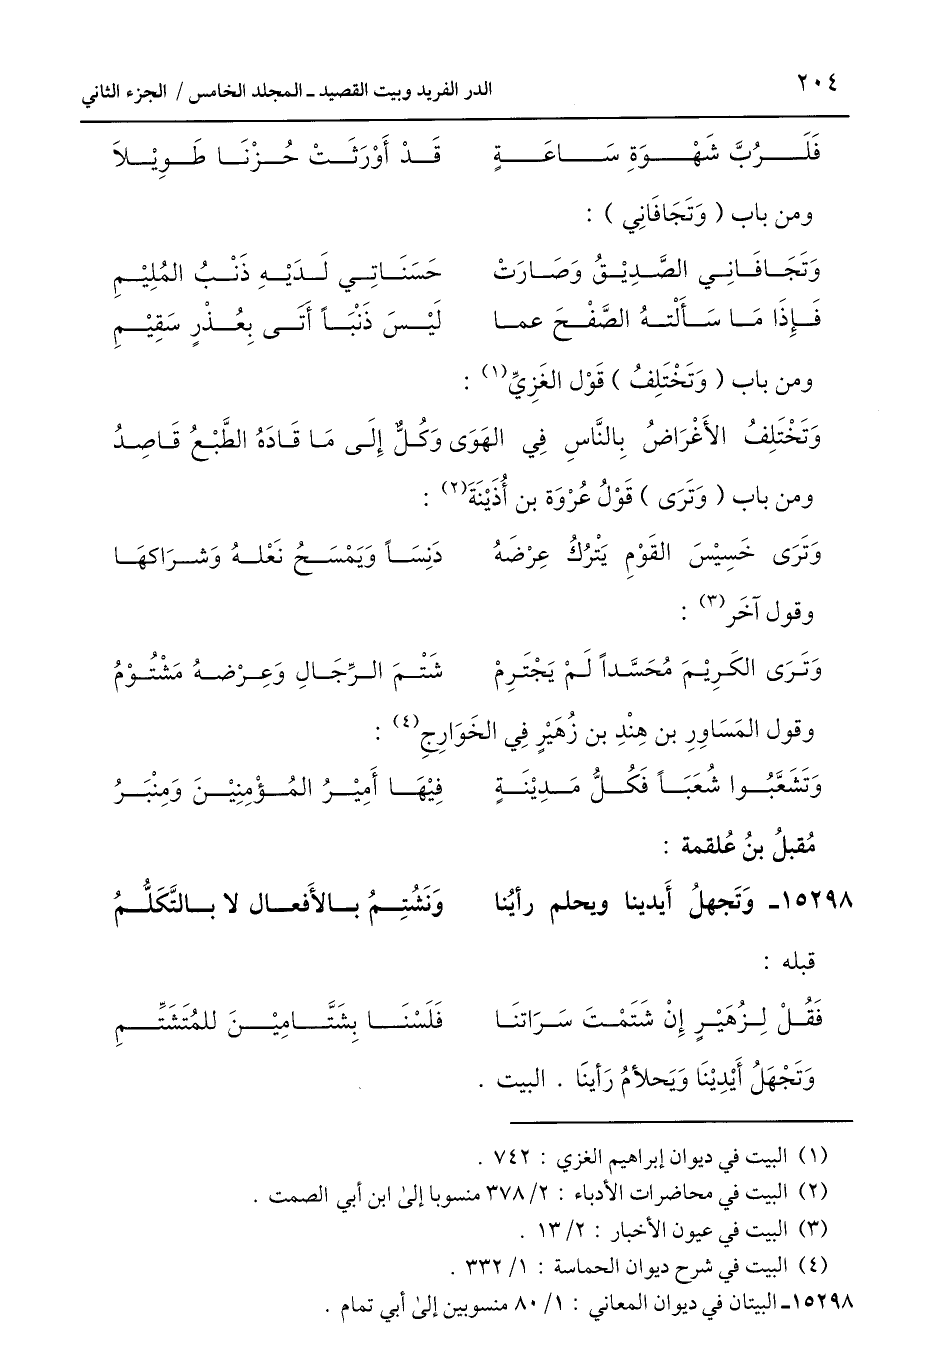 ٢٠٤
الدر الفريد وبيت القصيد ـ المجلد الخامس / الجزء الثاني
فَلَرُبَّ شَهْوَةِ سَاعَةٍ قَدْ أَوْرَثَتْ حُزْنَا طَوِيْلاَ
ومن باب ( وَتَجَافَانِي ) :
وَتَجَافَانِي الصَّدِيْقُ وَصَارَتْ حَسَنَاتِي لَدَيْهِ ذَنْبُ المُلِيْمِ
فَإِذَا مَا سَأَلْتهُ الصَّفْحَ عما لَيْسَ ذَنْبَاً أَتَى بِعُذْرٍ سَقِيْمِ
ومن باب ( وَتَخْتَلِفُ ) قَوْل الغَزِيِّ(١) :
وَتَخْتَلِفُ الأَغْرَاضُ بِالنَّاسِ فِي الهَوَى وَكُلٌّ إِلَى مَا قَادَهُ الطَّبْعُ قَاصِدُ
ومن باب ( وَتَرَى ) قَوْلُ عُرْوَة بن أُذَيْنَةَ(٢) :
وَتَرَى خَسِيْسَ القَوْمِ يَتْرُكُ عِرْضَهُ دَنِسَاً وَيَمْسَحُ نَعْلَهُ وَشرَاكهَا
وقول آخَر(٣) :
وَتَرَى الكَرِيْمَ مُحَسَّداً لَمْ يَجْتَرِمْ شَتْمَ الرِّجَالِ وَعِرْضهُ مَشْتُوْمُ
وقول المَسَاورِ بن هِنْدِ بن زُهَيْرٍ فِي الخَوَارِجِ(٤) :
وَتَشَعَّبُوا شُعَبَاً فَكُلُّ مَدِيْنَةٍ فِيْهَا أَمِيْرُ المُؤْمِنِيْنَ وَمِنْبَرُ
مُقبلُ بنُ عُلقمة :
١٥٢٩٨ـ وَتَجهلُ أَيدينا ويحلم رأيُنا وَنَشْتِمُ بالأَفعال لا بالتَّكَلُّمُ
قبله :
فَقُلْ لِزُهَيْرٍ إِنْ شَتَمْتَ سَرَاتنَا فَلَسْنَا بِشَتَّامِيْنَ للمُتَشَتِّمِ
وَتَجْهَلُ أَيْدِيْنَا وَيَحلأمُ رَأينَا . البيت .
(١) البيت في ديوان إبراهيم الغزي : ٧٤٢ .
(٢) البيت في محاضرات الأدباء : ٢/ ٣٧٨ منسوبا إلىٰ ابن أبي الصمت .
(٣) البيت في عيون الأخبار : ٢/ ١٣ .
(٤) البيت في شرح ديوان الحماسة : ١/ ٣٣٢ .
١٥٢٩٨ـ البيتان في ديوان المعاني : ١/ ٨٠ منسوبين إلىٰ أبي تمام .